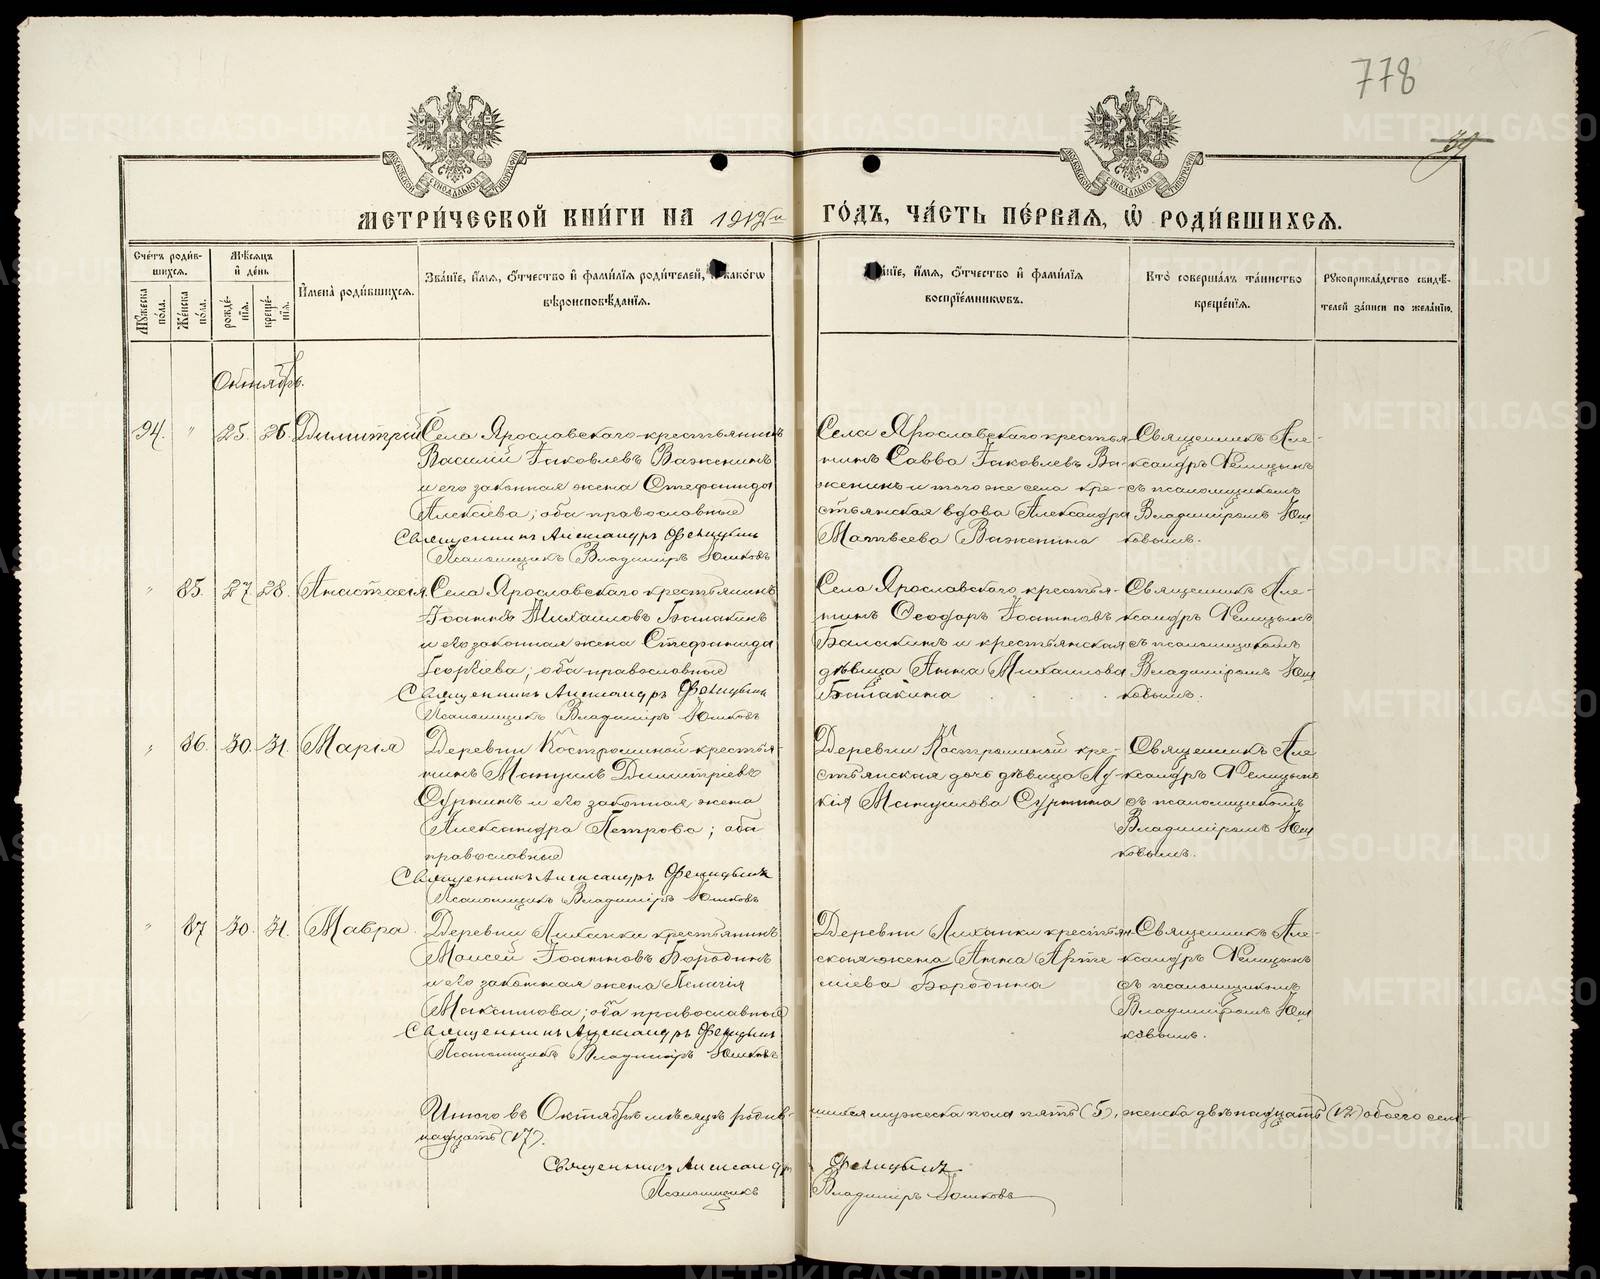 778
39
МОСКОВСКОЙ СѴНОДАЛЬНОЙ ТИПОГРАФІИ
МОСКОВСКОЙ СѴНОДАЛЬНОЙ ТИПОГРАФІИ
МЕТРИ́ЧЕСКОЙ КНИ́ГИ НА 1912й ГО́ДЪ, ЧА́СТЬ ПЕ́РВАЯ, Ѽ РОДИ́ВШИХСЯ.
Сче́тъ роди́в-
шихся.
Мѣ́сяцъ
и҆ де́нь
Му́жеска по́ла.
Же́нска по́ла.
рожде́-
нїя.
креще́-
нїя.
И҆мена̀ роди́вшихся.
Зва́нїе, и҆́мя, ѻ҆́тчество и҆ фами́лїя роди́телей, и҆ како́гѡ
вѣроисповѣ́данїя.
Зва́нїе, и҆́мя, ѻ҆́тчество и҆ фами́лїя
воспрїе́мникѡвъ.
Кто̀ соверша́лъ та́инство
креще́нїя.
Рукоприкла́дство свидѣ́-
телей за́писи по жела́нїю.
Октябрь.
94. " 25. 26. Димитрій
Села Ярославскаго крестьянинъ
Василій Іаковлевъ Важенинъ
и его законная жена Стефанида
Алексіева; оба православные
Священникъ Александръ Фелицынъ
Псаломщикъ Владиміръ Юшковъ
Села Ярославскаго крестья-
нинъ Савва Іаковлевъ Ва-
женинъ и того же села кре-
стьянская вдова Александра
Матвеева Важенина
Священникъ Але-
ксандръ Фелицынъ
съ псаломщикомъ
Владиміромъ Юш
ковымъ.
" 85. 27 28. Анастасія
Села Ярославскаго крестьянинъ
Іоаннъ Михаиловъ Балакинъ
и его законная жена Стефанида
Георгіева; оба православные
Священникъ Александръ Фелицынъ
Псаломщикъ Владиміръ Юшковъ
Села Ярославскаго крестья-
нинъ Ѳеодоръ Іоанновъ
Балакинъ и крестьянская
дѣвица Анна Михаилова
Балакина
Священникъ Але-
ксандръ Фелицынъ
съ псаломщикомъ
Владиміромъ Юш
ковымъ.
" 86. 30. 31. Марія
Деревни Костромской крестья-
нинъ Мануилъ Димитріевъ
Суринъ и его законная жена
Александра Петрова; оба
православные
Священникъ Александръ Фелицынъ
Псаломщикъ Владиміръ Юшковъ
Деревни Костроминой кре-
стьянская дочь дѣвица Лу-
кія Мануилова Сурнина
Священникъ Але
ксандръ Фелицынъ
съ псаломщикомъ
Владиміромъ Юш
ковымъ.
" 87 30. 31. Мавра
Деревни Лиханки крестьянинъ
Моисей Іоанновъ Бородинъ
и его законная жена Пелагія
Максимова; оба православные
Священникъ Александръ Фелицынъ
Псаломщикъ Владиміръ Юшковъ
Деревни Лиханки крестьян-
ская жена Анна Арте
міева Бородина
Священникъ Але-
ксандръ Фелицынъ
съ псаломщикомъ
Владиміромъ Юш
ковымъ.
Итого въ Октябрѣ мѣсяцѣ родив-шихся мужеска пола пять (5), женска двѣнадцать (12) обоего сем-
надцать (17).
Священникъ Александръ Фелицынъ
Псаломщикъ Владиміръ Юшковъ
METRIKI.GASO-URAL.RU